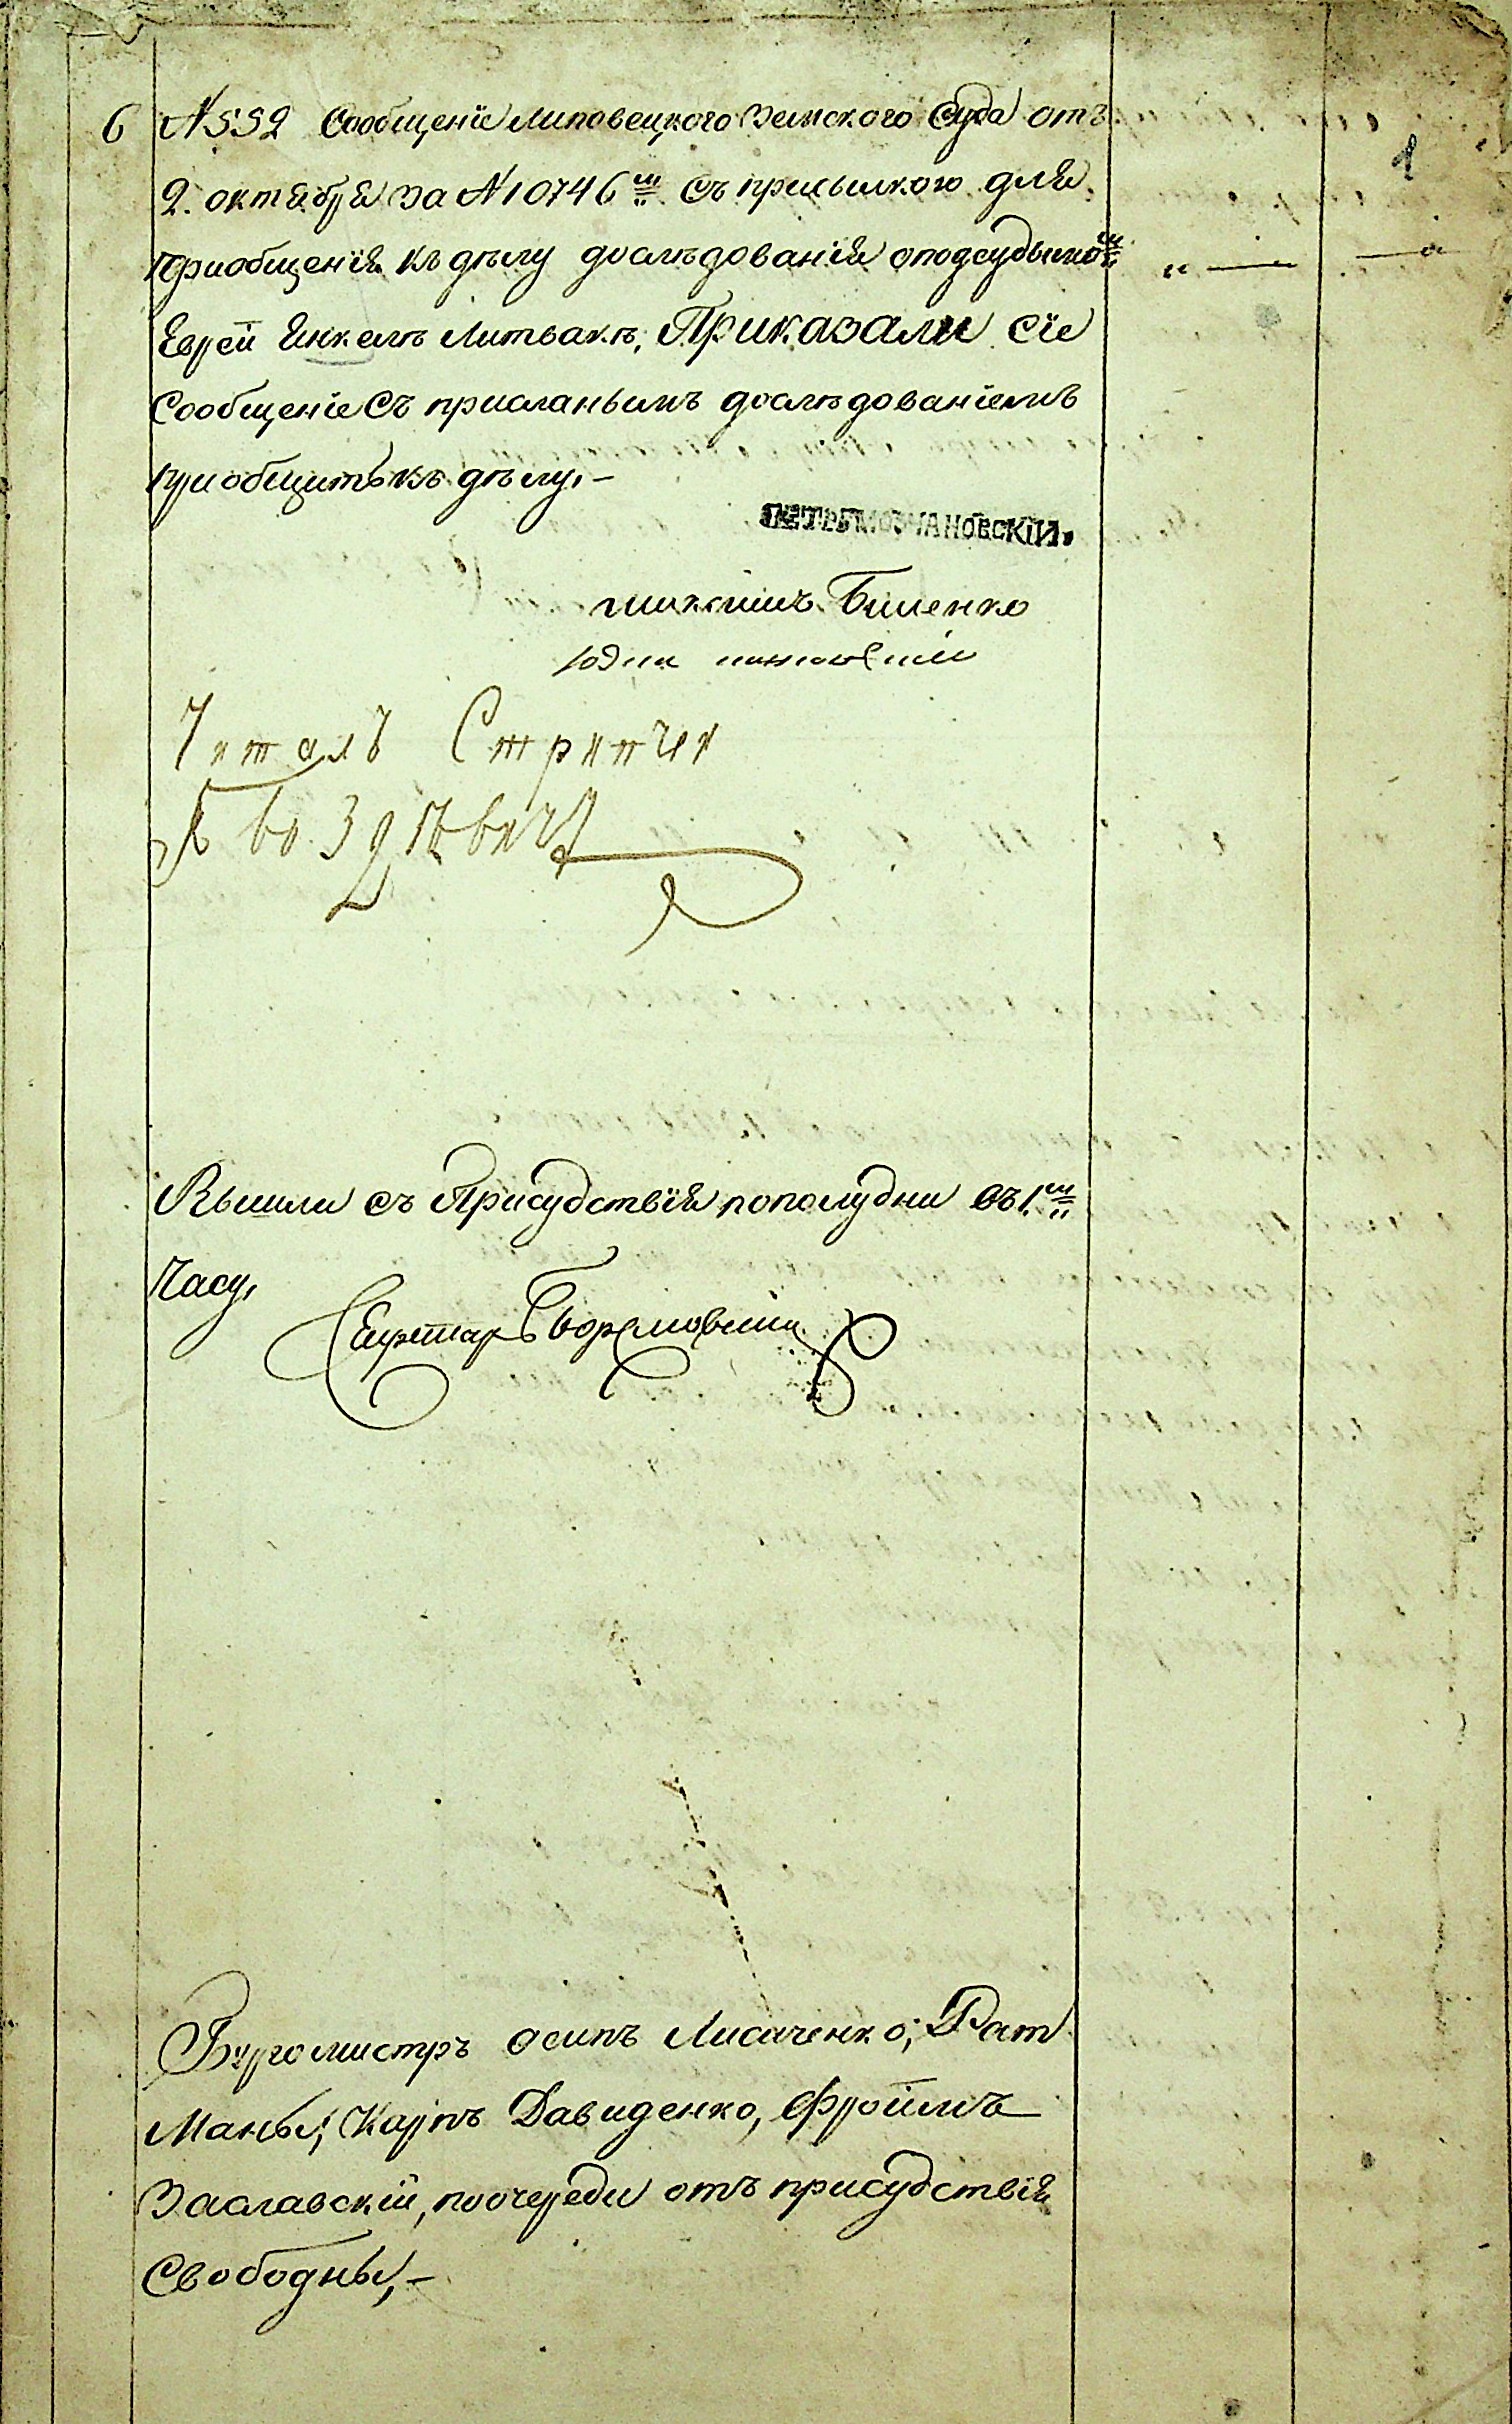 6 №552 Сообщеніе Липовецкого Земского Суда отъ
2. октября за №10746м съ присылкою для
1
приобщенія къ дѣлу дослѣдованія оподсудымом
" — —"
Еврей Янкелѣ Литвакѣ, Приказали сіе
сообщеніе съ присланымъ дослѣдованіемъ
приобщить къ дѣлу,–
ПЕТРЪ МОЧАНОВСКІЙ.
Читалъ Стрипчи
Вышли съ Присудствія пополудни въ 1.м
часу,
Секретарь
Бургомистръ Осипъ Лисаченко; Рат
маны; Карпъ Давиденко, Фроимъ
Заславскій, поочереди отъ присудствія
Свободны,–